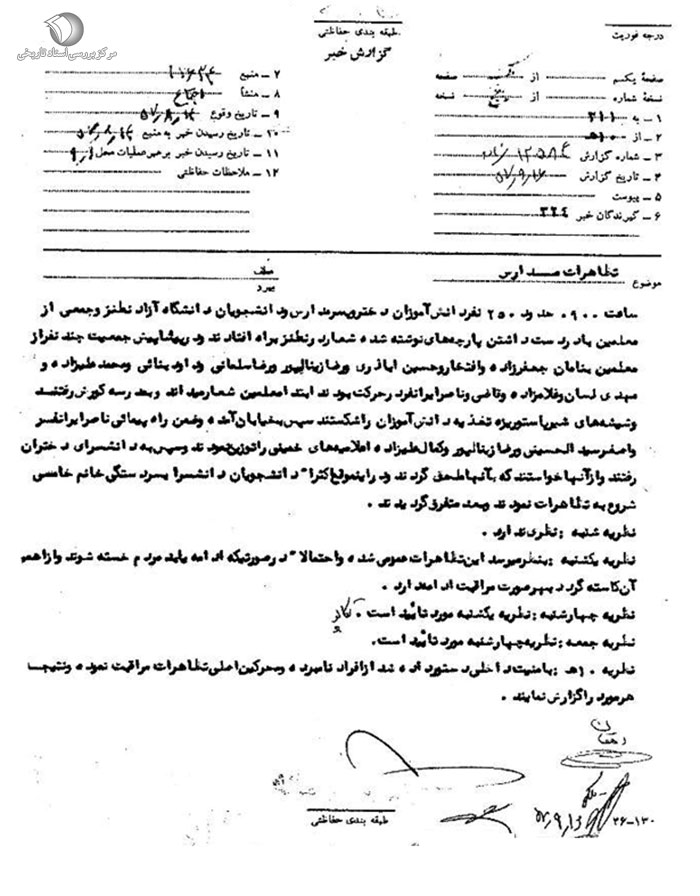 مرکز بررسی اسناد تاریخی
طبقه بندی حفاظتی
گزارش خبر
درجه فوریت
صفحهٔ یکم از صفحه
نسخهٔ شماره از نسخه
۱ ـ به ۳۱۱
۲ ـ از ۱۰ ه
۳ ـ شماره گزارش
۴ ـ تاریخ گزارش
۵ ـ پیوست
۶ ـ گیرندگان خبر ۳۲۴
۷ ـ منبع
۸ ـ منشأ
۹ ـ تاریخ وقوع
۱۰ ـ تاریخ رسیدن خبر به منبع
۱۱ ـ تاریخ رسیدن خبر برهبر عملیات محل
۱۲ ـ ملاحظات حفاظتی
موضوع تظاهرات مدارس
عطف
پیرو
ساعت ۰۹۰۰ حدود ۲۵۰ نفر دانش آموزان دختر و پسر مدارس و دانشجویان دانشگاه آزاد نطنز و جمعی از
معلمین با در دست داشتن پارچه های نوشته شده شعار در نطنز براه افتادند و در پیشاپیش جمعیت چند نفر از
معلمین بنامان جعفرزاده و افتخار و حسین اباذری و رضا زینالپور و رضا سلمانی و داود بنائی و محمد علیزاده و
مهدی لسان و غلامزاده و قاضی و ناصر ایرانفر در حرکت بودند ابتدا معلمین شعار میدادند و بمدرسه کورش رفتند
و شیشه های شیر پاستوریزه تغذیه دانش آموزان را شکستند سپس بخیابان آمده و ضمن راه پیمائی ناصر ایرانفر
و اصغر سید الحسینی و رضا زینالپور و کمال علیزاده اعلامیه های خمینی را توزیع نمودند و سپس به دانشسرای دختران
رفتند و از آنها خواستند که بآنها ملحق گردند و در اینموقع اکثراً دانشجویان دانشسرا بسردستگی خانم خامسی
شروع به تظاهرات نمودند و بعد متفرق گردیدند .
نظریه شنبه : نظری ندارد .
نظریه یکشنبه : بنظر میرسد این تظاهرات عمومی شده و احتمالاً در صورتیکه ادامه یابد مردم خسته شوند و از اهمیت
آن کاسته گردد بهر صورت مراقبت ادامه دارد .
نظریه چهارشنبه : نظریه یکشنبه مورد تأیید است .
نظریه جمعه : نظریه چهارشنبه مورد تأیید است .
نظریه ۱۰ ه : بامنیت داخلی دستور داده شد از افراد نامبرده و محرکین اصلی تظاهرات مراقبت نموده و نتیجه
هر مورد را گزارش نمایند .
طبقه بندی حفاظتی
۳۶-۱۳۰